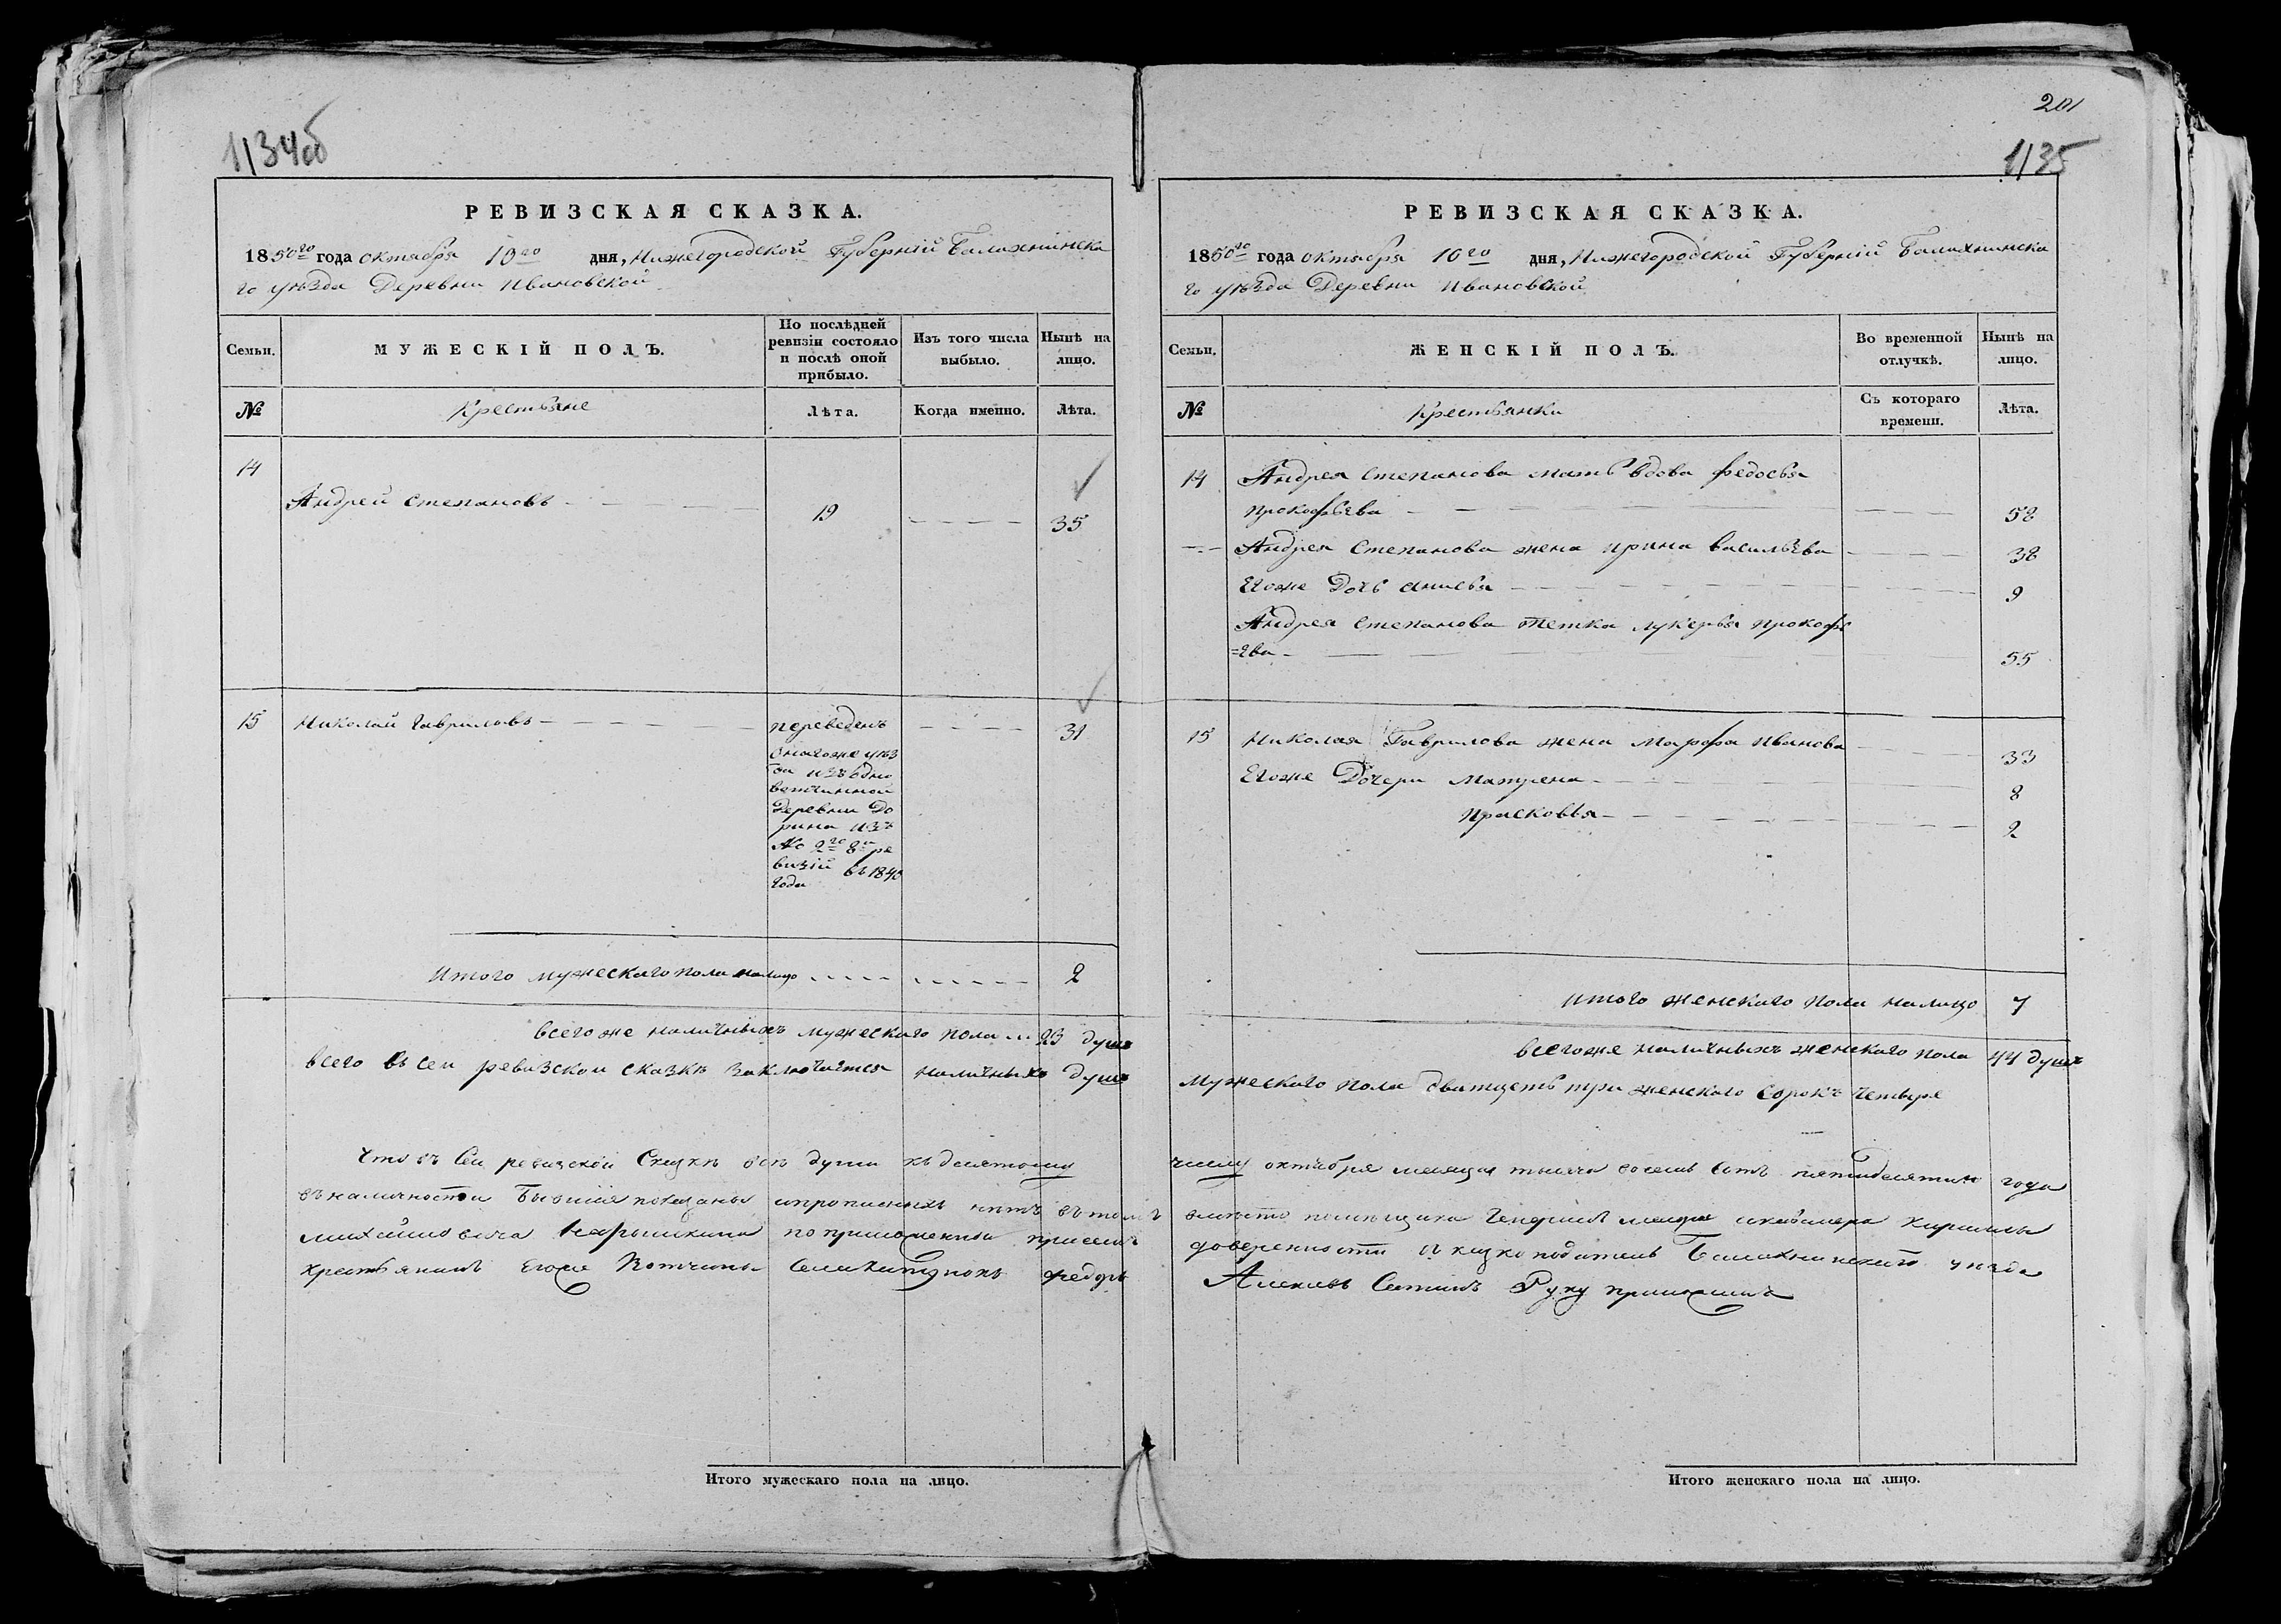 1134об
РЕВИЗСКАЯ СКАЗКА.
1850го года октября 10го дня, Нижегородской Губернiй Балахнинска
го уѣзда Деревни Ивановской
Семьи.
МУЖЕСКІЙ ПОЛЪ.
По послѣдней ревизіи состояло и послѣ оной прибыло.
Изъ того числа выбыло.
Нынѣ на лицо.
№
Крестьяне
Лѣта.
Когда именно.
Лѣта.
14
Андрей Степановъ 19 35
15 Николай Гавриловъ 31
переведенъ
оногоже уѣз
да изъ одно
вотчинной
Деревни До
рина изъ
№ 2го 8й ре
визiй въ 1840
года
Итого мужескаго пола налицо 2
всегоже наличныхъ мужескаго пола 23 душъ
всего въ сеи ревизскои сказкѣ заключается наличныхъ душъ
Что въ Сеи ревизской Сказкѣ всѣ души къ десятому
въ наличности бывшiя показаны и прописныхъ нѣтъ въ томъ
михайловича Нарышкина по приложенной при семъ
крестьянинъ Егоже Вотчины федоръ
201
1135
РЕВИЗСКАЯ СКАЗКА.
1850го года октября 10го дня, Нижегородской Губернiй Балахнинска
го уѣзда Деревни Ивановской
Семьи.
ЖЕНСКІЙ ПОЛЪ.
Во временной отлучкѣ.
Нынѣ на лицо.
№
Крестьянки
Съ котораго времени.
Лѣта.
14 Андрея Степанова мать вдова федосья
прокофьева 58
Андрея Степанова жена ирина васильева 38
Егоже Дочь анисья 9
Андрея Степанова тетка лукерья прокофь
=ева 55
15 Николая Гаврилова жена Марфа Иванова 33
Егоже Дочери матрена 8
прасковья 2
итого женскаго пола налицо 7
всегоже наличныхъ женскаго пола 44 душъ
Мужескаго пола дватцеть три женскаго сорокъ четыре
числу октября месяца тысяча восемь сотъ пятидесятаго года
вместо помещика маiора и кавалера кирилы
доверенности сказкоподатель Балахнинскаго уѣзда
Алексѣевъ Руку приложилъ
Итого мужескаго пола на лицо.
Итого женскаго пола на лицо.